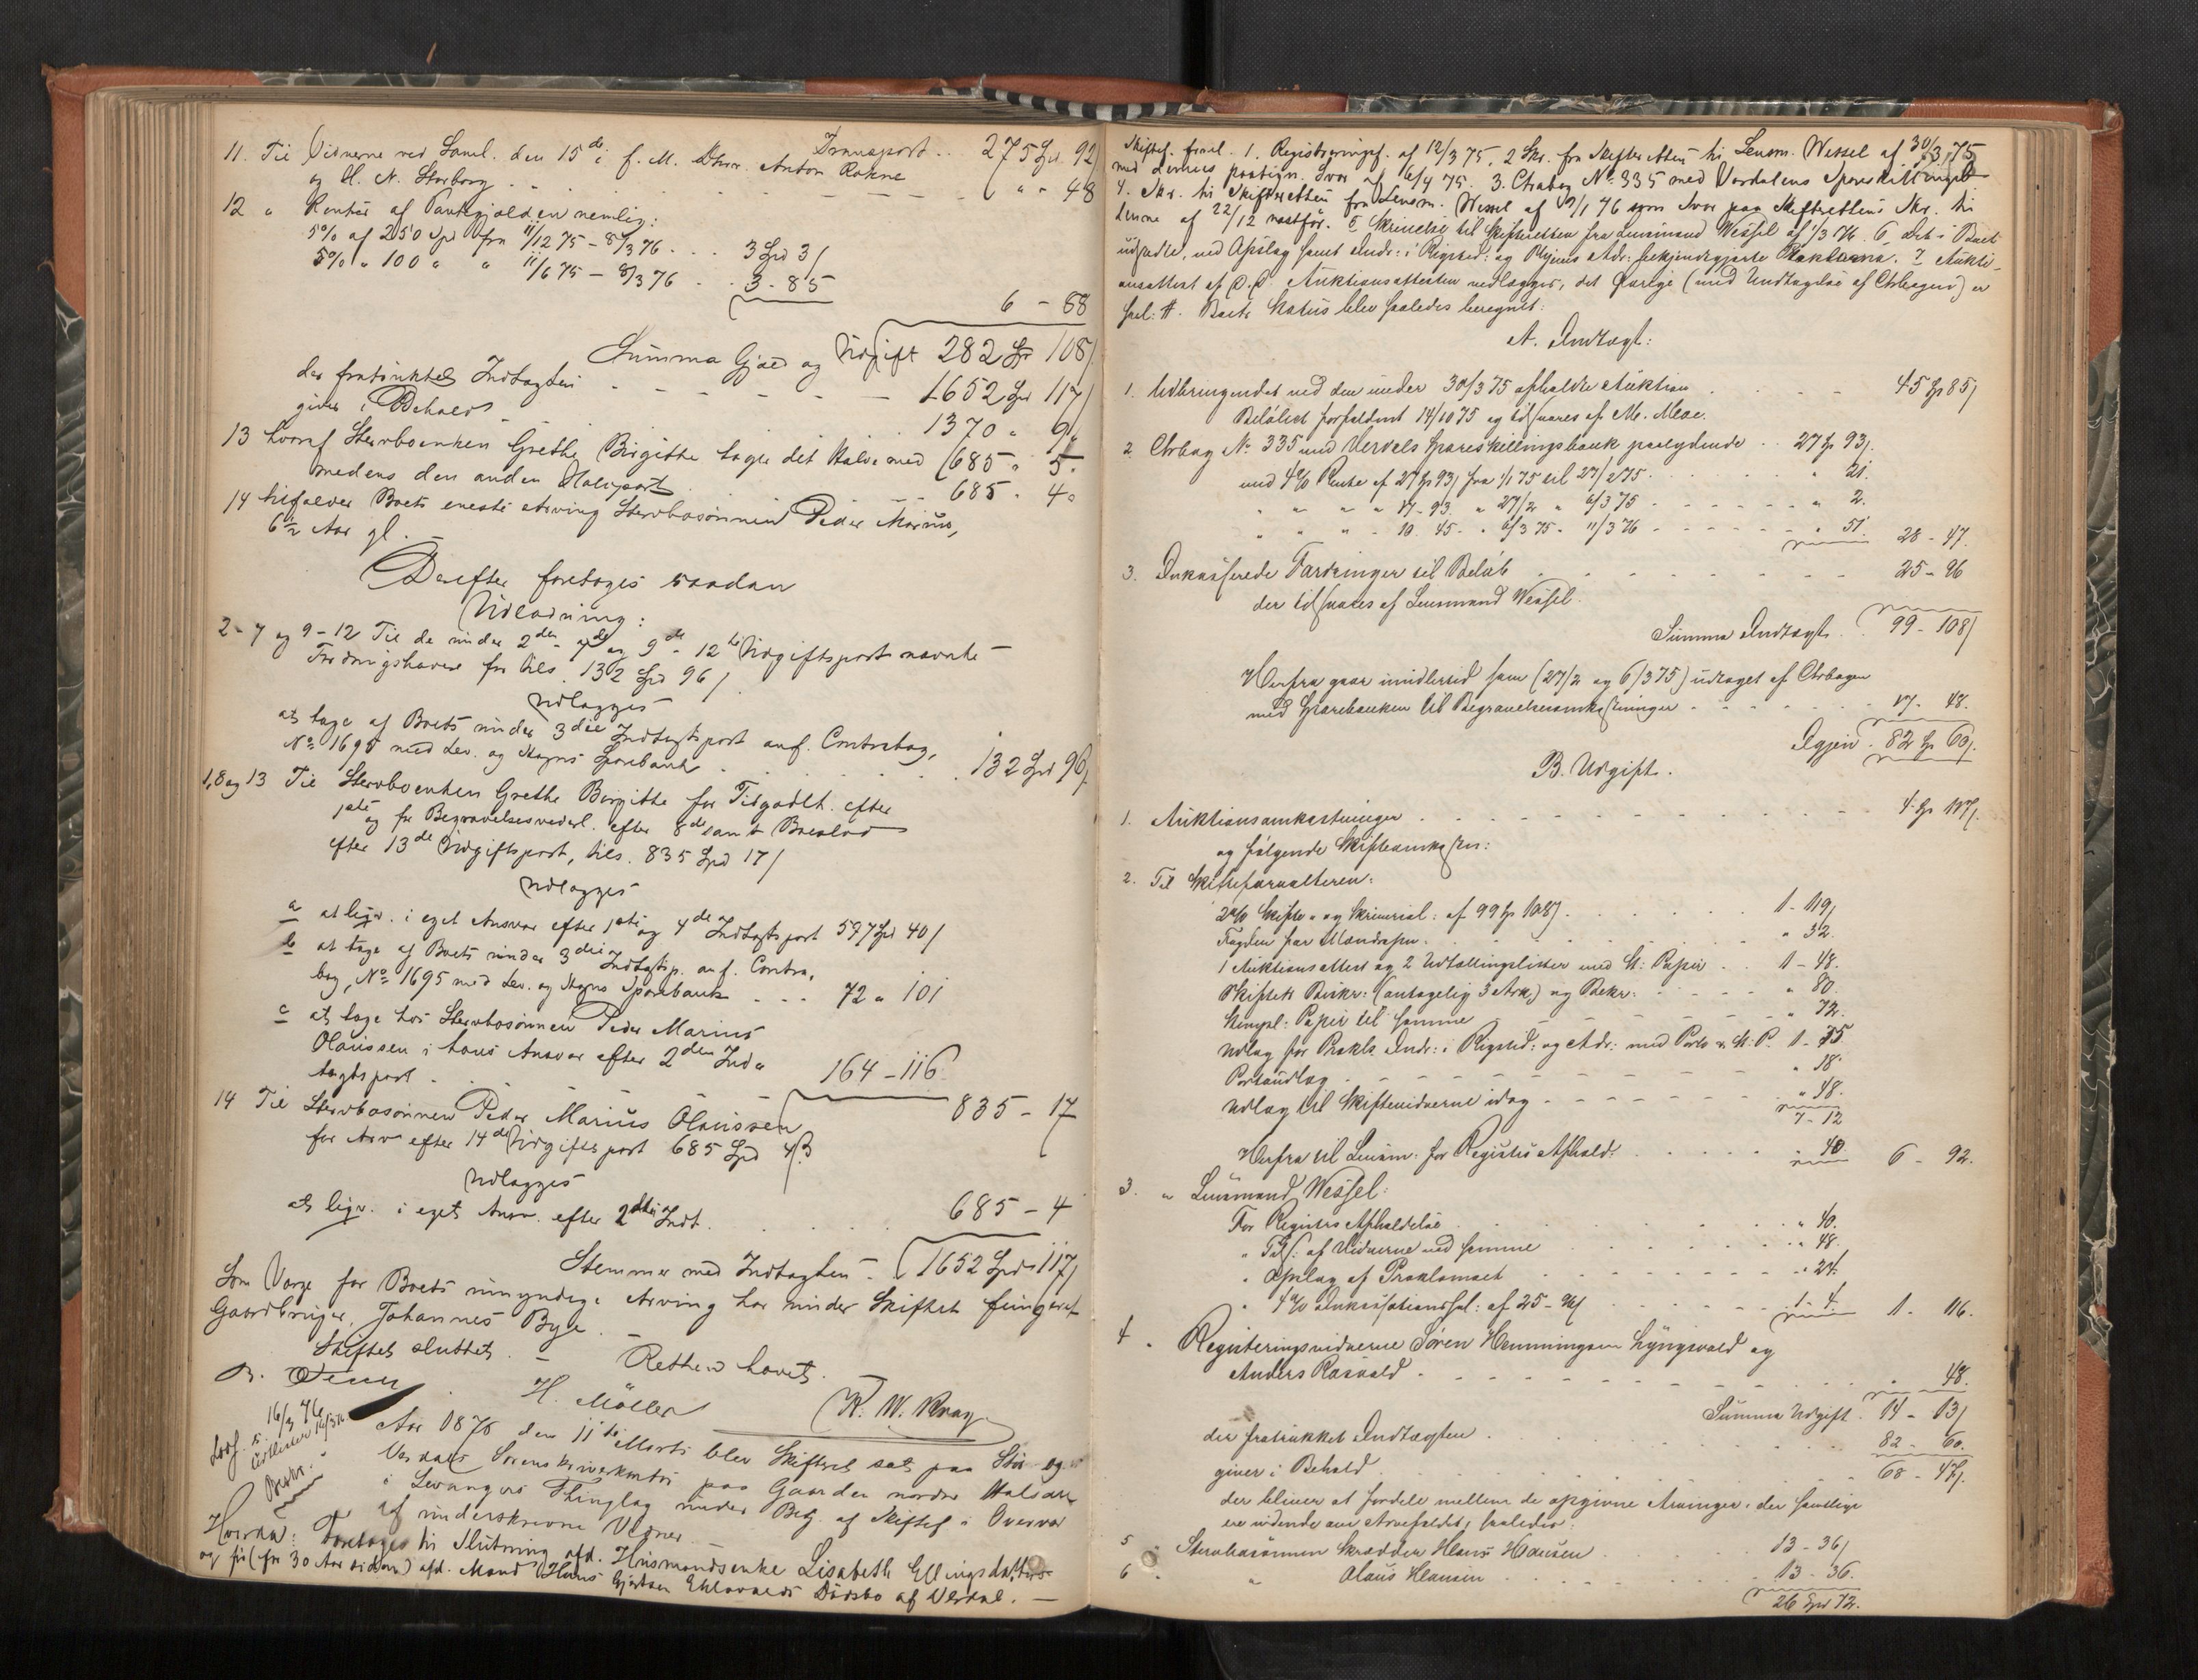 Transport .. 275 Spd 92/
11. Til Vidnerne ved Saml. den 15de f. M. Anton Rokne
og N. Storborg . . " - 48
12 " Renter af Pantegjælden nemlig:
5% af 250 Spd fra 11/12 75 - 8/3 76 . . . 3 Spd 3/
5% " 100 " " 11/6 75 - 8/3 76 . . 3 - 85
6 - 88
Summa Gjæld og Udgift 282 Spd 108/
der fratrukket Indtægten - - - - - 1652 Spd 117/
giver i Behold 1370 " 9/
13 hvoraf Stervboenken Grethe Birgitte tager det Halve med 685 " 5.
medens den anden Halvpart 685 " 4.
14 tilfalder Boets eneste Arving Stervbosønnen Peder Marius,
6 1/2 Aar gl. -
Derefter foretoges saadan
Udlodning:
2-7 og 9-12 Til de under 2den - 7de og 9de - 12te Udgiftspost nævnte
Fordringshavere for tils. 132 Spd 96/
Udlægges
at tage af Boets under 3die Indtægtspost anf. Contrabog,
No 1695 med Lev. og Skogns Sparebank . . . 132 Spd 96/
1, 8 og 13 Til Stervboenken Grethe Birgitte for Tilgodeh. efter
1ste og for Begravelsesvederl. efter 8de samt Boeslod
efter 13de Udgiftspost, tils. 835 Spd 17/
Udlægges
a at ligv. i eget Ansvar efter 1ste og 4de Indtægtspost 597 Spd 40/
b at tage af Boets under 3die Indtægtsp. anf. Contra-
bog, No 1695 med Lev. og Skogns Sparebank . . . 72 " 101
c at tage hos Stervbosønnen Peder Marius
Olaussen i hans Ansvar efter 2den Ind-
tægtspost . . 164 - 116
835 - 17
14 Til Stervbosønnen Peder Marius Olaussen
for Arv efter 14de Udgiftspost 685 Spd 4 ß
Udlægges
at ligv. i eget Ansv. efter 2den Indt. . . . 685 - 4
Stemmer med Indtægten - 1652 Spd 117/
Som Værge for Boets umyndige Arving har under Skiftet fungeret
Gaardbruger, Johannes Bye. -
Skiftet sluttet. - Retten hævet.
H. Möller
16/3 76
Aar 1876 den 11te Marts blev Skifteret sat paa Stør- og
Værdals Sorenskriverkontor paa Gaarden nordre Halsan
i Levangers Thinglag under Betj. af Skiftef. i Overvær
af underskrevne Vidner
Hvorda: Foretoges til Slutning afd. Husmandsenke Lisabeth Ellingsdatters
og før (for 30 Aar siden) afd. Mand Hans Dødsbo af Verdal. -
Skiftef. freml. 1. Registreringsf. af 12/3 75. 2 Skr. fra Skifteretten til Lensm. Wessel af 30/3 75
med dennes paategn. Svar af 6/4 75. 3. Ctrabog No 335 med Værdalens Spareskillingsb.
4. Skr. til Skifteretten fra Lensm. Wessel af /1 76 som Svar paa Skifterettens Skr. til
denne af 22/12 næstfør. 5 Skrivelse til Skifteretten fra Lensmand Wessel af 1/3 76. 6. Det i Boet
udstædte, ved Opslag samt Indr: i Rigstid: og Adr: bekjendtgjorte Proklama. 7 Aukti-
onsattest af D. D. Auktionsattesten vedlægges, det Øvrige (med Undtagelse af Ctrbogen) er
Boets Status blev saaledes beregnet:
A. Indtægt:
1. Udbringendet ved den under 30/3 75 afholdte Auktion . . . 45 Sp 85/
Beløbet forfaldent 14/10 75 og tilsvares af M. Moe.
2. Ctrbog No 335 med Verdals Spareskillingsbank paalydende . . 27 Sp 93/.
med 4% Rente af 27 Sp 93/ fra 1/1 75 til 27/2 75 . . " 21.
" " " " 17 - 93. " 27/2 " 6/3 75 - - - - " 2.
" " " - 10. 45 - " 6/3 75 - 11/3 76 - - - - " 51. 28 - 47.
3. Inkasserede Fordringer til Beløb - - - - - 25 - 96
der tilsvares af Lensmand Wessel.
Summa Indtægt . 99 - 108/
Herfra gaar imidlertid som (27/2 og 6/3 75) udtaget af Ctrbogen
med Sparebanken til Begravelsesomkostninger - - - - 17. 48.
Igjen . 82 Sp 60/.
B. Udgift.
1. Auktionsomkostninger . . . . . 4 Sp 117/.
og følgende Skifteomkostn:
2. Til Skifteforvalteren:
2% Skifte- og Skriversal: af 99 Sp 108/ . . . 1 - 119/
" 32.
1 Auktionsattest og 2 Udtællingslister med St: Papir . . 1 - 48.
Skiftets Beskr: (antagelig 3 Ark,) og Bekr: - - - - " 80.
Stempl: Papir til samme - - - - " 72.
Udlæg for Prokls Indr: i Rigstid: og Adr: med Porto & St: P. 1 - 75
Portoudlæg - - - - " 18.
Udlæg til Skiftevidnerne idag - - - - " 48.
7 - 12
Herfra til Lensm: for Registr Afhold: . . . " 40 6 - 92.
3. " Lensmand Wessel:
For Registrs Afholdelse . . . " 40.
" Tils: af Vidnerne ved samme . . . " 48.
" Opslag af Proklamaet - - - " 24.
" 4% Inkassationssal: af 25 - 96/ - - - 1 - 4. 1. 116.
4 " Registreringsvidnerne Søren Hemmingsen Lyngsvald og
Anders Rosvold . - - - . . 48.
Summa Udgift . 14 - 13/
der fratrukket Indtægten . . . 82 - 60.
giver i Behold . . . 68 - 47/.
der bliver at fordele mellem de opgivne Arvinger, der samtlige
ere vidende om Arvefaldet, saaledes:
5 " Stervbosønnen Skrædder Hans Hansen . . . 13 - 36/
6 " " Olaus Hansen . . . 13 - 36.
26 Spd 72.